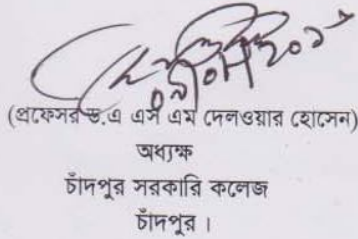 (প্রফেসর ড.এ এস এম দেলওয়ার হোসেন)
অধ্যক্ষ
চাঁদপুর সরকারি কলেজ
চাঁদপুর ।